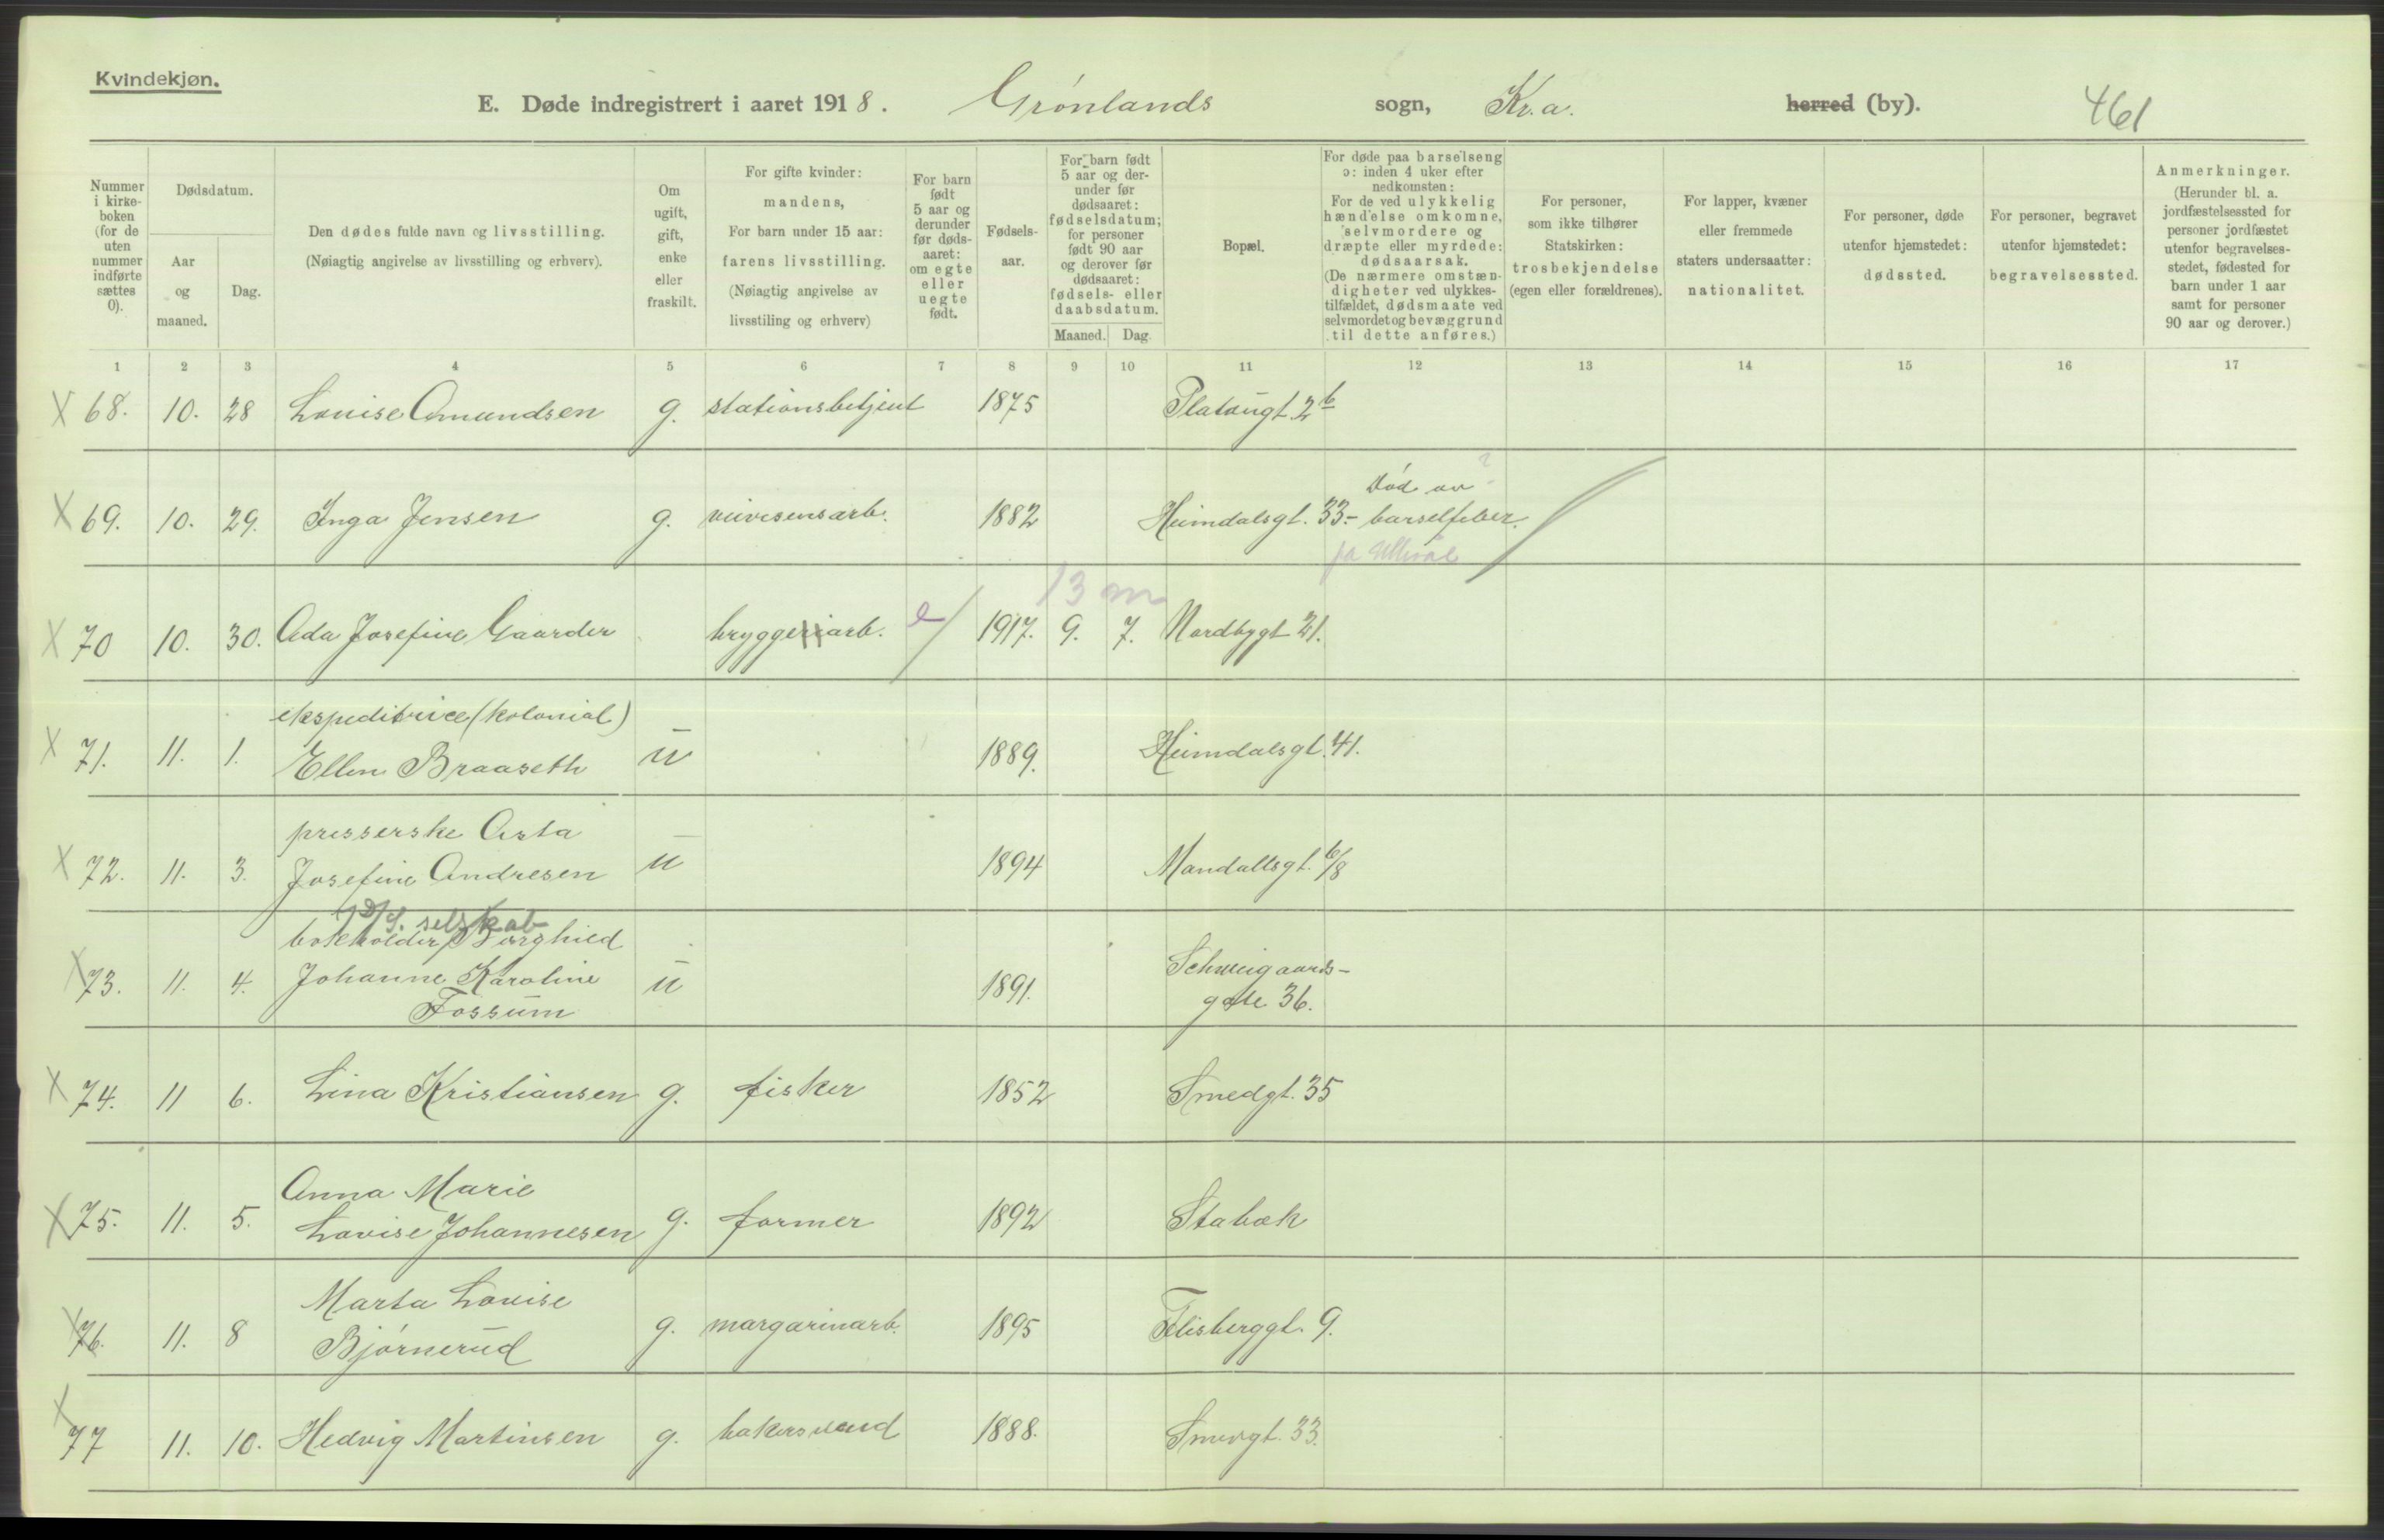 Kvindekjøn.
E. Døde indregistrert i aaret 1918. Grønlands sogn, Kr.a. herred (by). 461
Nummer i kirkeboken (for de uten nummer indførte sættes 0).
Dødsdatum.
Aar og maaned.
Dag.
Den dødes fulde navn og livsstilling.
(Nøiagtig angivelse av livsstilling og erhverv).
Om ugift, gift, enke eller fraskilt.
For gifte kvinder:
mandens,
For barn under 15 aar:
farens livsstilling.
(Nøiagtig angivelse av livsstiling og erhverv)
For barn født 5 aar og derunder før dødsaaret: om egte eller uegte født.
Fødselsaar.
For barn født 5 aar og derunder før dødsaaret: fødselsdatum; for personer født 90 aar og derover før dødsaaret: fødsels- eller daabsdatum.
Maaned. Dag.
Bopæl.
For døde paa barselseng ɔ: inden 4 uker efter nedkomsten:
For de ved ulykkelig hændelse omkomne, selvmordere og dræpte eller myrdede: dødsaarsak.
(De nærmere omstændigheter ved ulykkestilfældet, dødsmaate ved selvmordet og bevæggrund til dette anføres.)
For personer, som ikke tilhører Statskirken: trosbekjendelse (egen eller forældrenes).
For lapper, kvæner eller fremmede staters undersaatter: nationalitet.
For personer, døde utenfor hjemstedet: dødssted.
For personer, begravet utenfor hjemstedet: begravelsessted.
Anmerkninger.
(Herunder bl. a. jordfæstelsessted for personer jordfæstet utenfor begravelsesstedet, fødested for barn under 1 aar samt for personer 90 aar og derover.)
1 2 3 4 5 6 7 8 9 10 11 12 13 14 15 16 17
X 68. 10. 28 Louise Amundsen g. stationsbetjent 1875 Platougt. 2b
Død av ?
X 69. 10. 29. Inga Jensen g. veivesensarb. 1882 Heimdalsgt. 33.- barselfeber.
13 m
X 70 10. 30. Ada Josefine Gaarder bryggeriarb. e/ 1917. 9. 7. Nordbygt 21.
ekspeditrice (kolonial)
X 71. 11. 1. Ellen Braaseth u 1889. Heimdalsgt. 41.
presserske Asta
X 72. 11. 3. Josefine Andresen u 1894 Mandallsgt. 6/8
selskab
bokholder Borghild
X 73. 11. 4. Johanne Karoline u 1891. Schweigaards-
Fossum gate 36.
X 74. 11 6. Lina Kristiansen g. fisker 1852 Smedgt. 35
Anna Marie
X 75. 11. 5. Lovise Johannesen g. former 1892 Stabæk
Marta Lovise
X 76. 11. 8 Bjørnerud g. margarinarb. 1895 Flisberggt. 9.
X 77 11. 10. Hedvig Martinsen g. bakersvend 1888. Smedgt. 33.